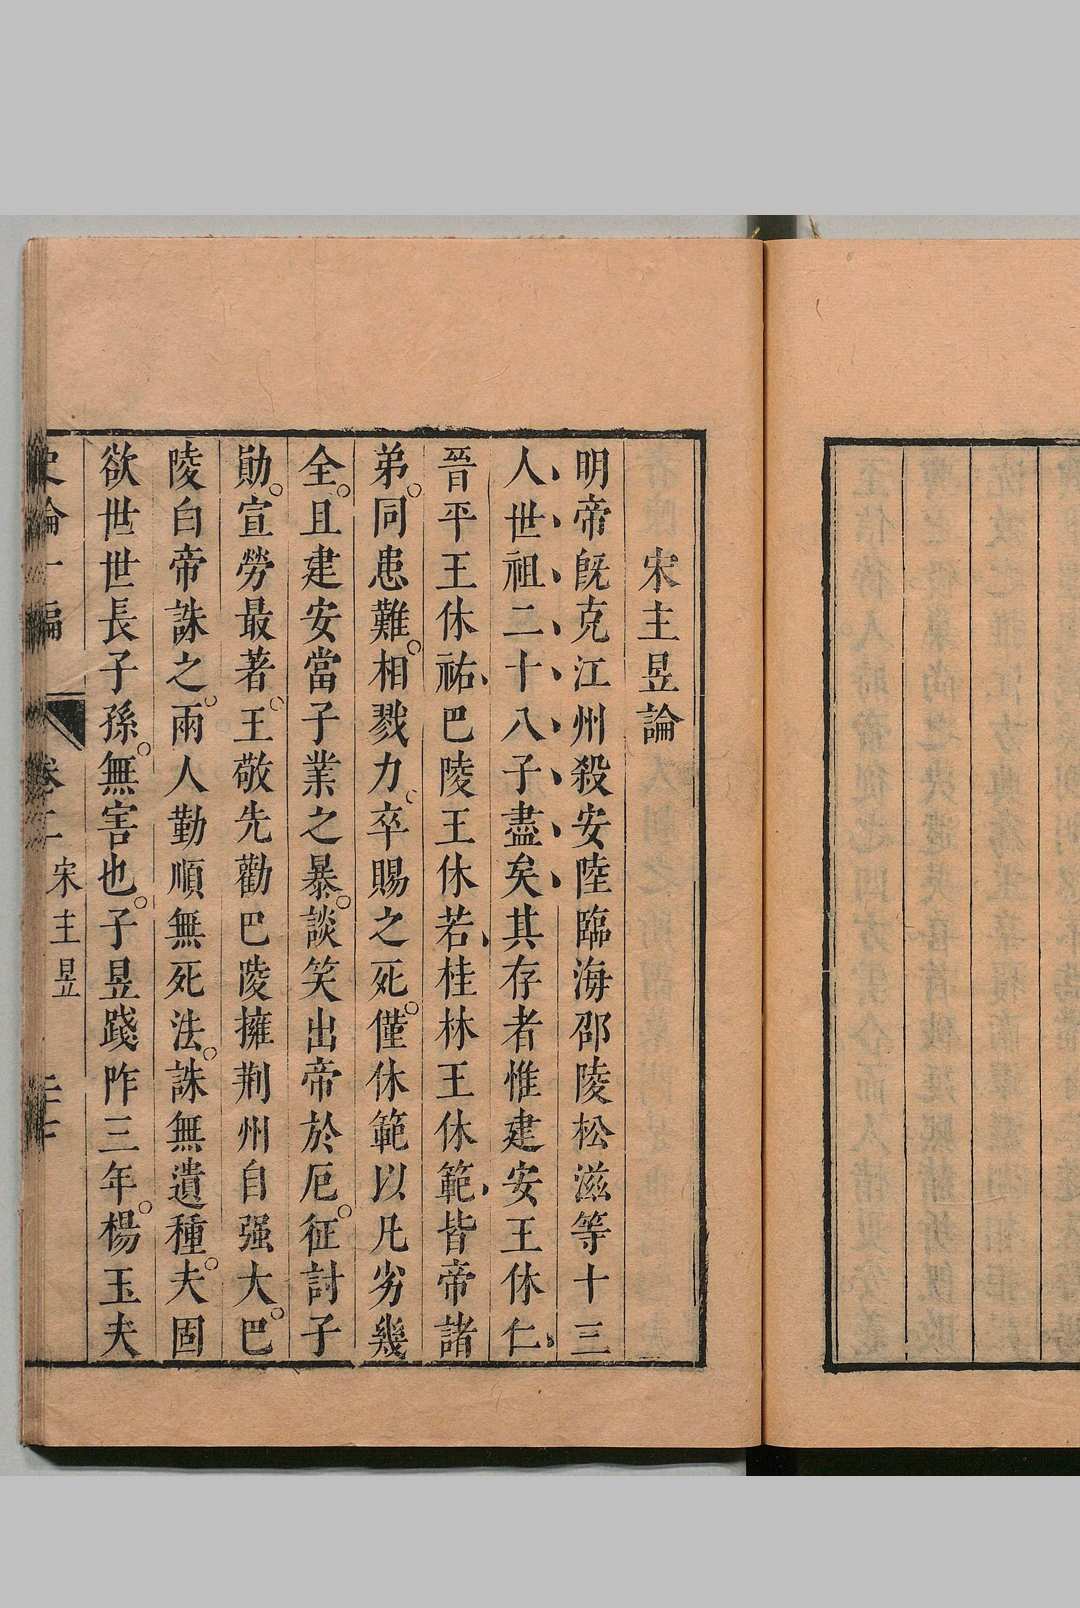 宋主昱論
明帝旣克江州殺安陸臨海邵陵松滋等十三
人世祖二十八子盡矣其存者惟建安王休仁
晉平王休祐巴陵王休若桂林王休範皆帝諸
弟同患難相戮力卒賜之死僅休範以凡劣幾
全且建安當子業之暴談笑出帝於厄征討子
勛宣勞最著王敬先勸巴陵擁荆州自强大巴
陵白帝誅之兩人勤順無死法誅無遺種夫固
欲世世長子孫無害也子昱踐阼三年楊玉夫
史論一編 卷二 宋主昱